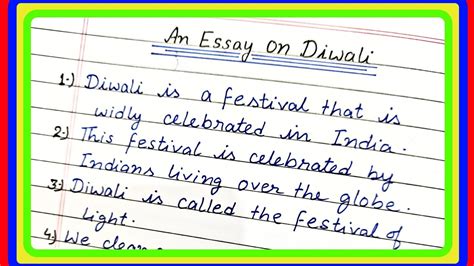 An Essay on Diwali
1.) Diwali is a festival that is
widly celebrated in India.
2.) This festival is celebrated by
Indians living over the globe.
3.) Diwali is called the festival of
light.
4.) We clean